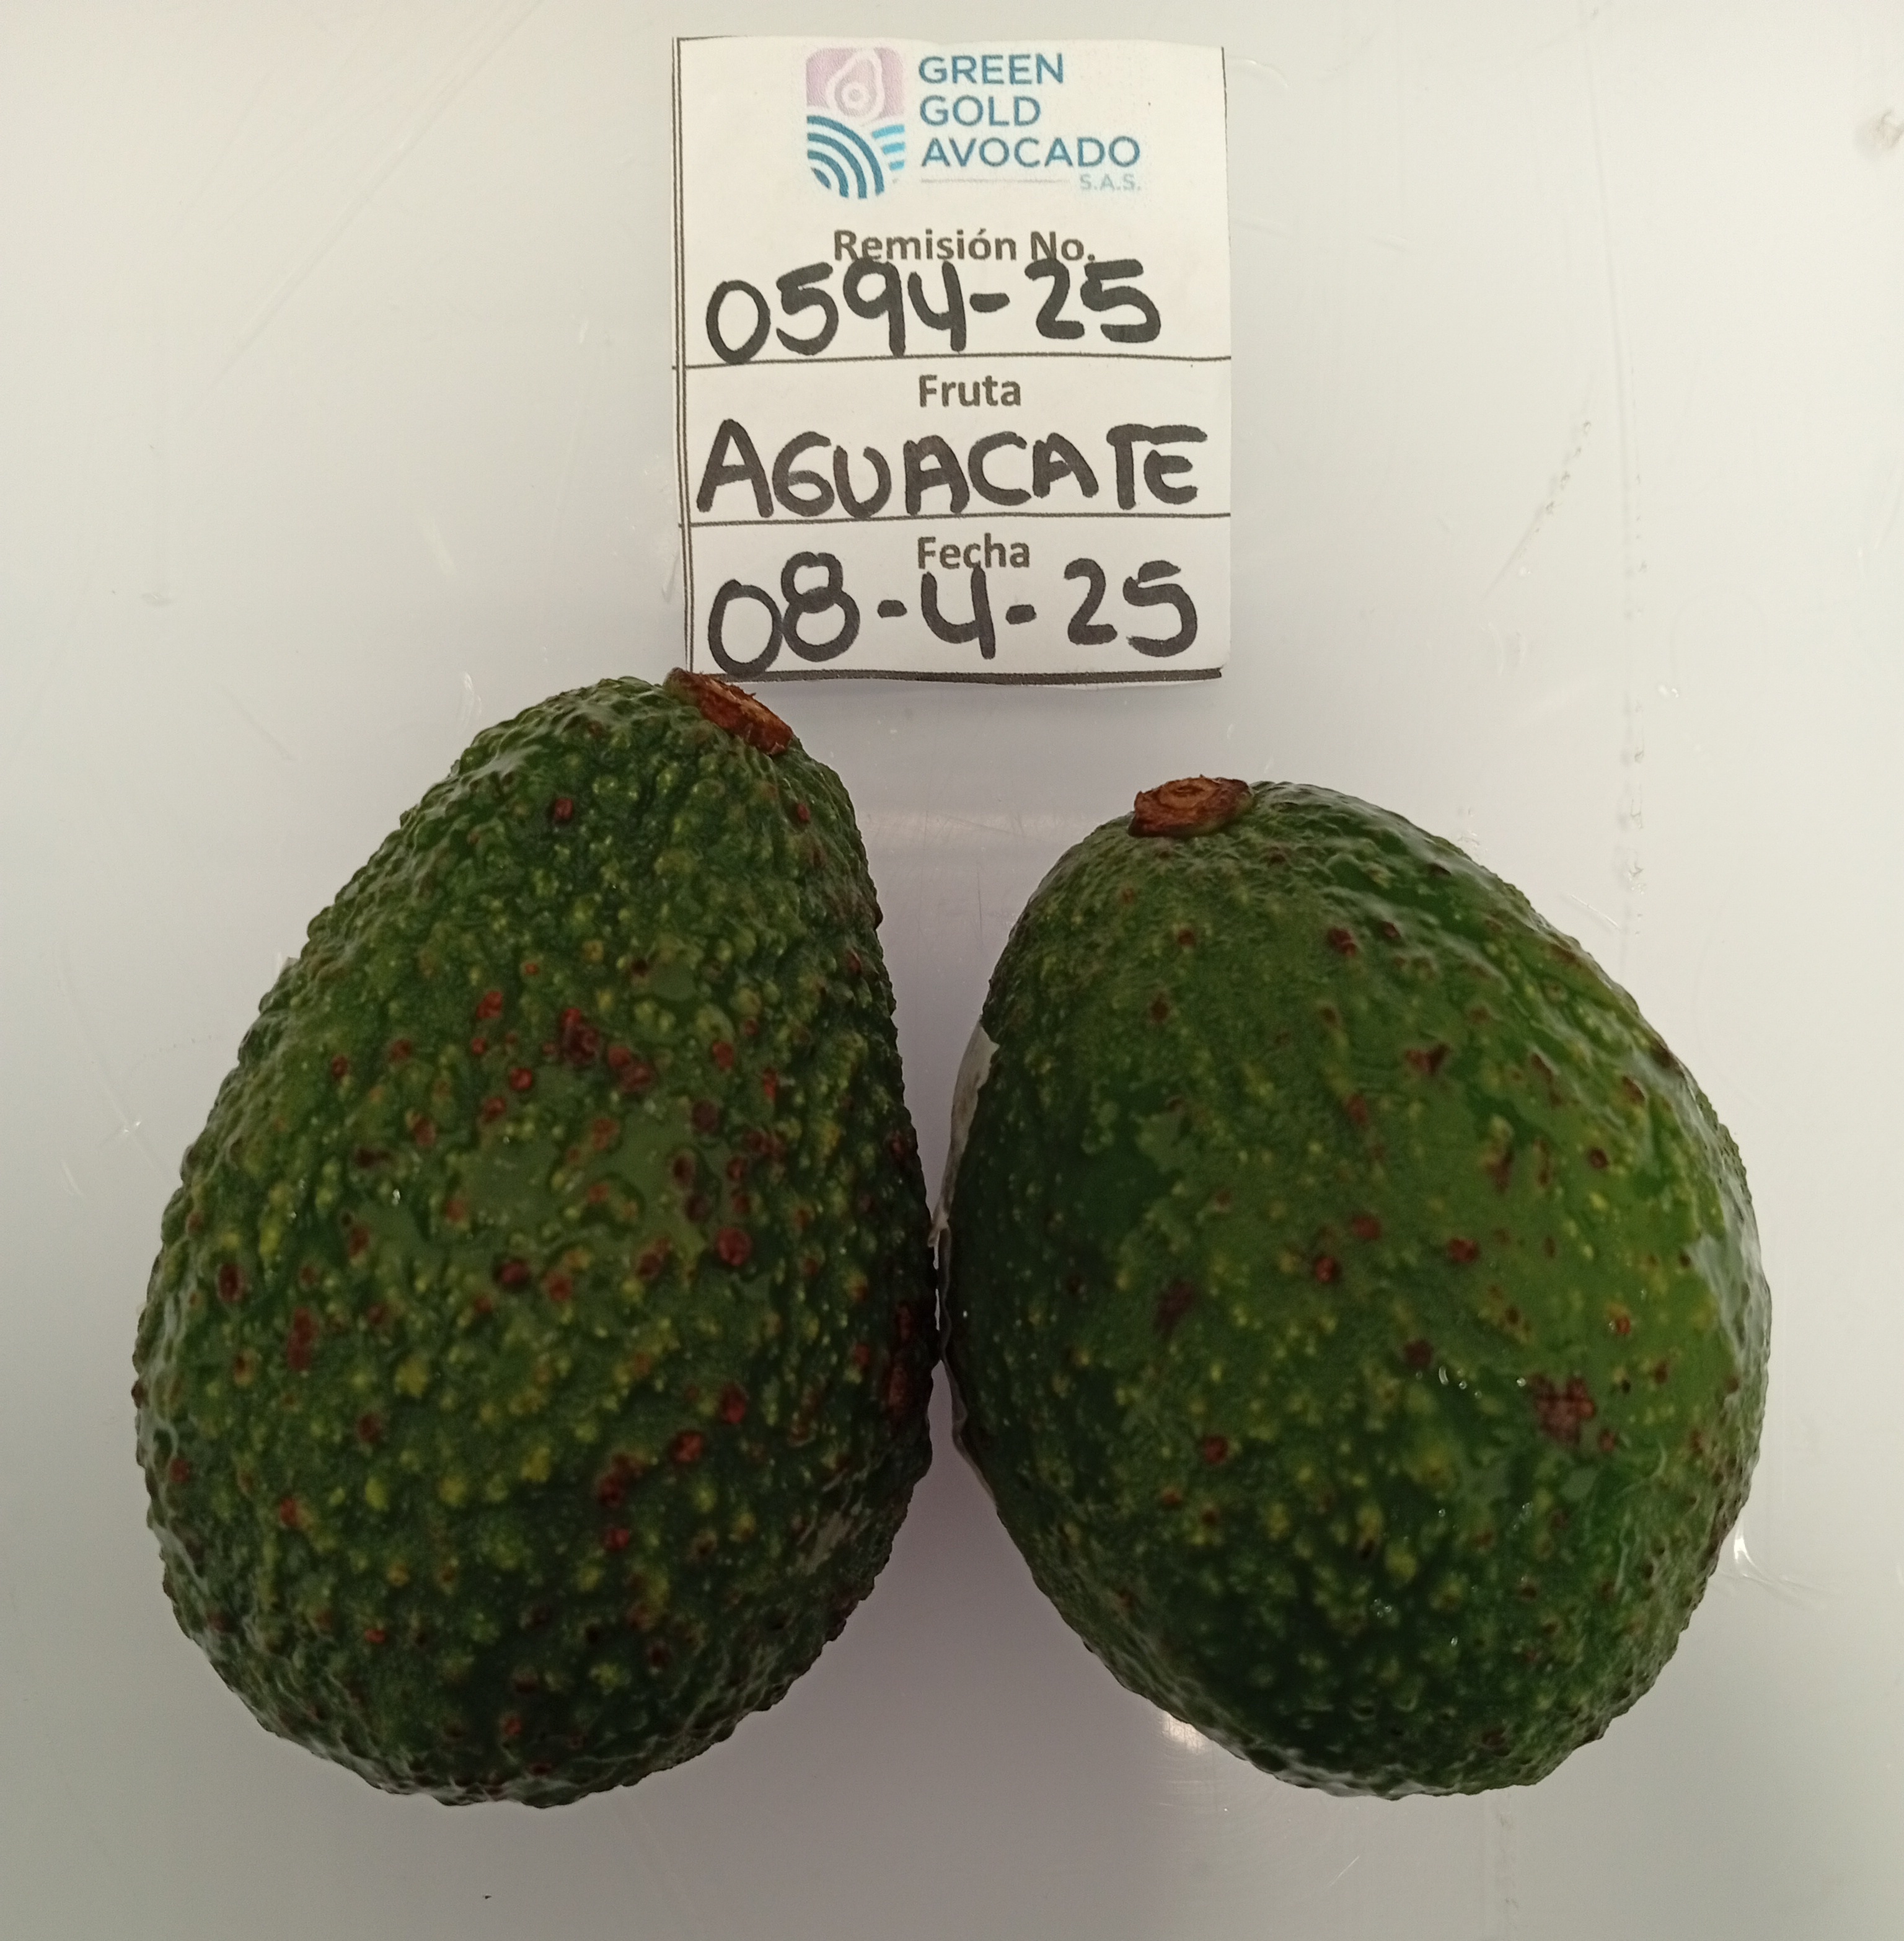 GREEN
GOLD
AVOCADO
S.A.S.
Remisión No.
0594-25
Fruta
AGUACATE
Fecha
08-4-25